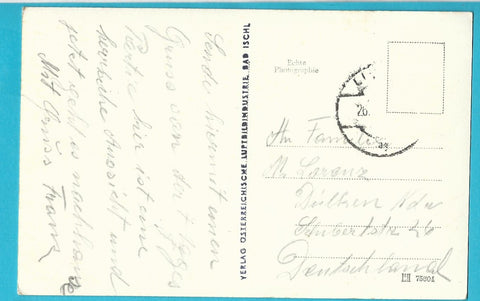 Sende hiermit einen
Gruss von der
Partie hier ist eine
herrliche Aussicht und
jetzt gehts nachhause
Mit Gruss Franz
VERLAG ÖSTERREICHISCHE LUFTBILDINDUSTRIE, BAD ISCHL
Echte
Photographie
LI
26.
An Familie
M Lorenz
Dülken Ndrh
Schubertstr 26
Deutschland
75801